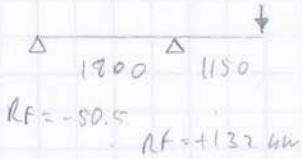 1800 1150
RF = -50.5
RF = +132 kN